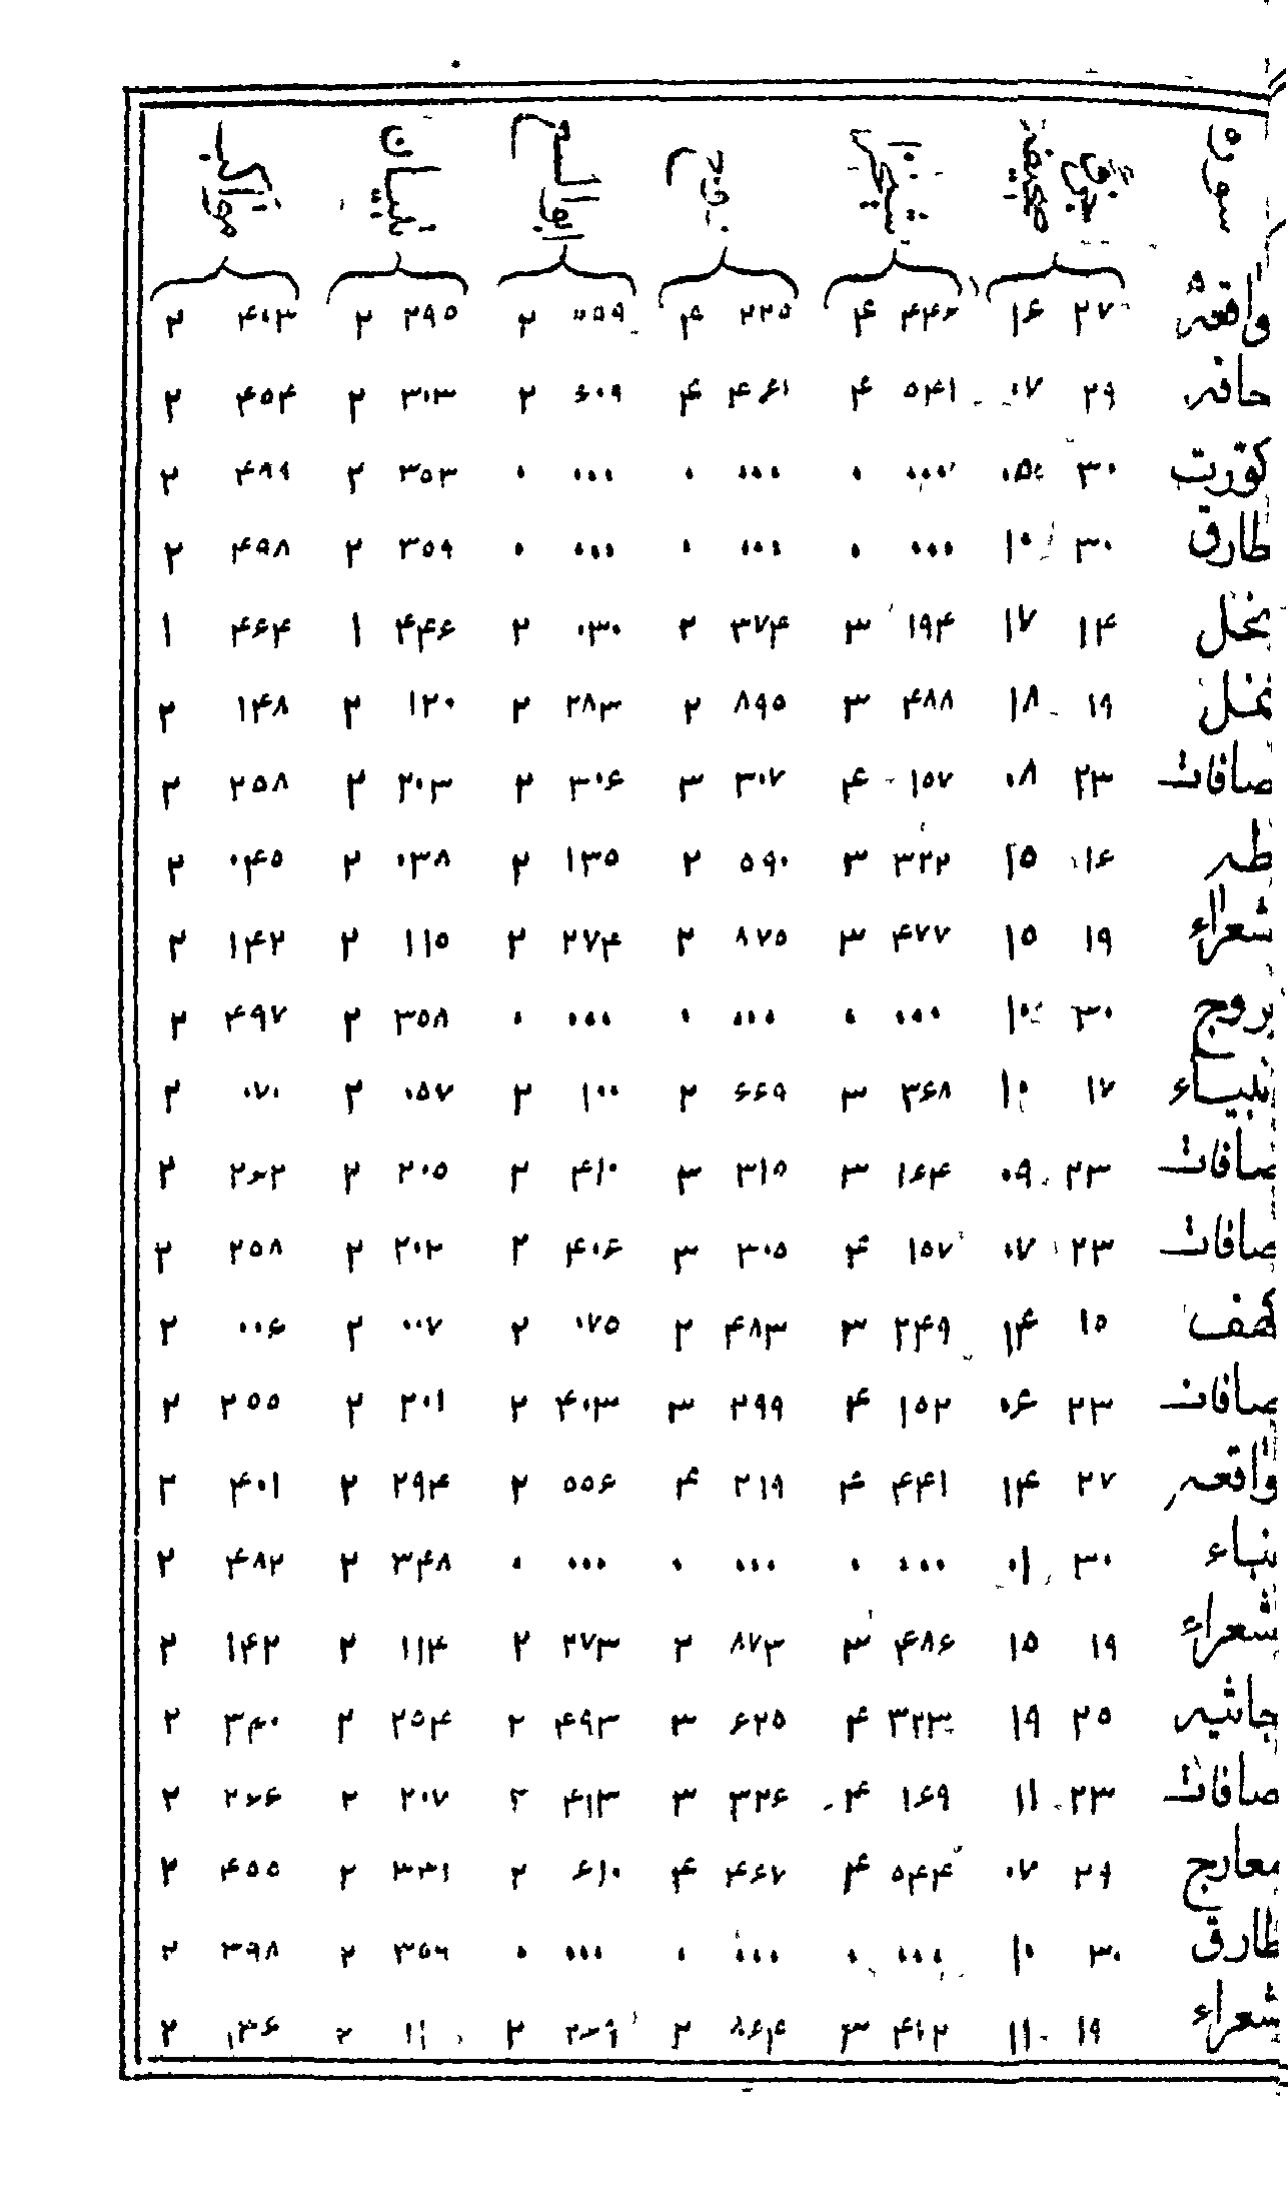 سوره جزؤ صحیفه شیخزاده رازی ابو السعود تبیان مواکب
واقعه ۲۷ ۱۶ ۴۴۶ ۴ ۲۲۵ ۴ ۵۵۹ ۲ ۲۹۵ ۲ ۴۰۳ ۲
حاقه ۲۹ ۰۷ ۵۴۱ ۴ ۴۶۱ ۴ ۶۰۹ ۲ ۳۰۳ ۲ ۴۵۴ ۲
کورت ۳۰ ۰۵ ۰۰۰ ۰ ۰۰۰ ۰ ۰۰۰ ۰ ۳۵۳ ۲ ۴۸۹ ۲
طارق ۳۰ ۱۰ ۰۰۰ ۰ ۰۰۰ ۰ ۰۰۰ ۰ ۳۵۹ ۲ ۴۹۸ ۲
نحل ۱۴ ۱۷ ۱۹۴ ۳ ۳۷۴ ۲ ۰۳۰ ۲ ۴۴۶ ۱ ۴۶۴ ۱
نمل ۱۹ ۱۸ ۴۸۸ ۳ ۸۹۵ ۲ ۲۸۳ ۲ ۱۲۰ ۲ ۱۴۸ ۲
صافات ۲۳ ۰۸ ۱۵۷ ۴ ۳۰۷ ۳ ۳۰۶ ۲ ۲۰۳ ۲ ۲۵۸ ۲
طه ۱۶ ۱۵ ۳۲۲ ۳ ۵۹۰ ۲ ۱۳۵ ۲ ۰۳۸ ۲ ۰۴۵ ۲
شعراء ۱۹ ۱۵ ۴۷۷ ۳ ۸۷۵ ۲ ۲۷۴ ۲ ۱۱۵ ۲ ۱۴۲ ۲
بروج ۳۰ ۱۰ ۰۰۰ ۰ ۰۰۰ ۰ ۰۰۰ ۰ ۳۵۸ ۲ ۴۹۷ ۲
انبیاء ۱۷ ۱۰ ۳۶۸ ۳ ۶۶۹ ۲ ۱۰۰ ۲ ۰۵۷ ۲ ۰۷۰ ۲
صافات ۲۳ ۰۹ ۱۶۴ ۳ ۳۱۵ ۳ ۴۱۰ ۲ ۲۰۵ ۲ ۲۶۲ ۲
صافات ۲۳ ۰۷ ۱۵۷ ۴ ۳۰۵ ۳ ۴۰۶ ۲ ۲۰۲ ۲ ۲۵۸ ۲
کهف ۱۵ ۱۴ ۲۴۹ ۳ ۴۸۳ ۲ ۰۷۵ ۲ ۰۰۷ ۲ ۰۰۶ ۲
صافات ۲۳ ۰۶ ۱۵۲ ۴ ۲۹۹ ۳ ۴۰۳ ۲ ۲۰۱ ۲ ۲۵۵ ۲
واقعه ۲۷ ۱۴ ۴۴۱ ۴ ۲۱۹ ۴ ۵۵۶ ۲ ۲۹۴ ۲ ۴۰۱ ۲
نباء ۳۰ ۰۱ ۰۰۰ ۰ ۰۰۰ ۰ ۰۰۰ ۰ ۳۴۸ ۲ ۴۸۲ ۲
شعراء ۱۹ ۱۵ ۴۸۶ ۳ ۸۷۳ ۲ ۲۷۳ ۲ ۱۱۴ ۲ ۱۴۲ ۲
جاثیه ۲۵ ۱۹ ۳۲۳ ۴ ۶۲۵ ۳ ۴۹۳ ۲ ۲۵۴ ۲ ۳۴۰ ۲
صافات ۲۳ ۱۱ ۱۶۹ ۴ ۳۲۶ ۳ ۴۱۳ ۲ ۲۰۷ ۲ ۲۶۶ ۲
معارج ۲۹ ۰۷ ۵۴۴ ۴ ۴۶۷ ۴ ۶۱۰ ۲ ۳۳۱ ۲ ۴۵۵ ۲
طارق ۳۰ ۱۰ ۰۰۰ ۰ ۰۰۰ ۰ ۰۰۰ ۰ ۳۵۹ ۲ ۳۹۸ ۲
شعراء ۱۹ ۱۱ ۴۶۲ ۳ ۸۶۴ ۲ ۲۶۹ ۲ ۱۱ ۲ ۱۳۶ ۲